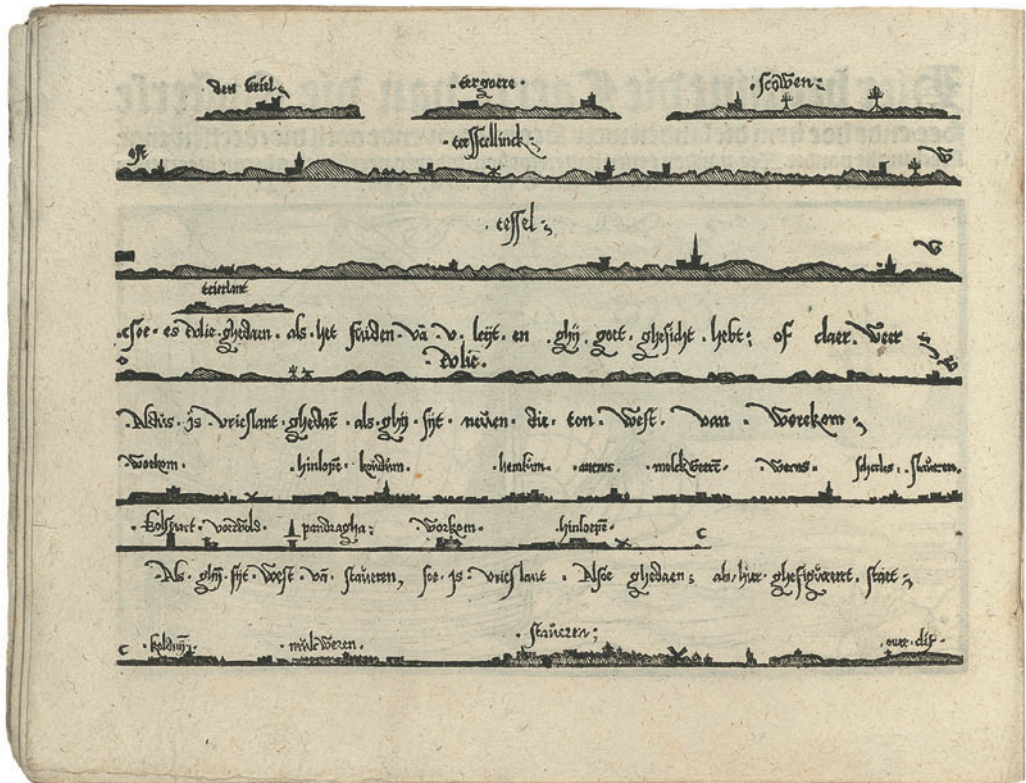 den briel · tergoere · scowen
terscellinck
ost w
tessel
w
eierlant
soe · es · vlie · ghedaen · als · het · suiden · vā · v · leyt · en · ghy · goet · ghesicht · hebt; of claer · weer
vlie
Aldus · is · vrieslant · ghedaē · als · ghy · syt · neuen · die · ton · west · van · worekom
workom · hinlopē · koudum · hemlum · molckweerē · werns · scherles · staueren
bolswart · pandragha · workom · hinloepē · c
Als · ghy · syt · west · vā · staueren, soe · is · vrieslant · Alsoe ghedaen; als · hier · ghefigureert · staet
staueren
c · mulcweren · ouer · dik